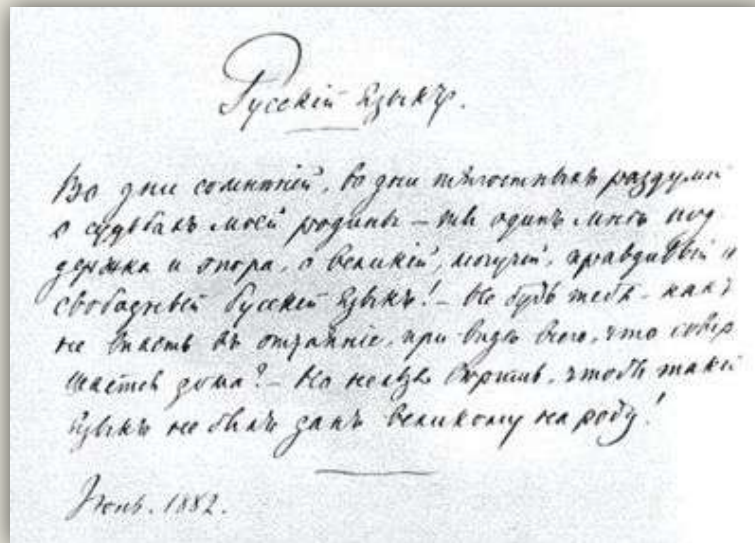 Русскій Языкъ.
Во дни сомнѣній, во дни тягостныхъ раздумій
о судьбахъ моей родины – ты одинъ мнѣ под
держка и опора, о великій, могучій, правдивый и
свободный Русскій Языкъ! – Не будь тебя – какъ
не впасть въ отчаяніе, при видѣ всего, что совер
шается дома? – Но нельзя вѣрить, чтобы такой
языкъ не былъ данъ великому народу!
Іюнь. 1882.